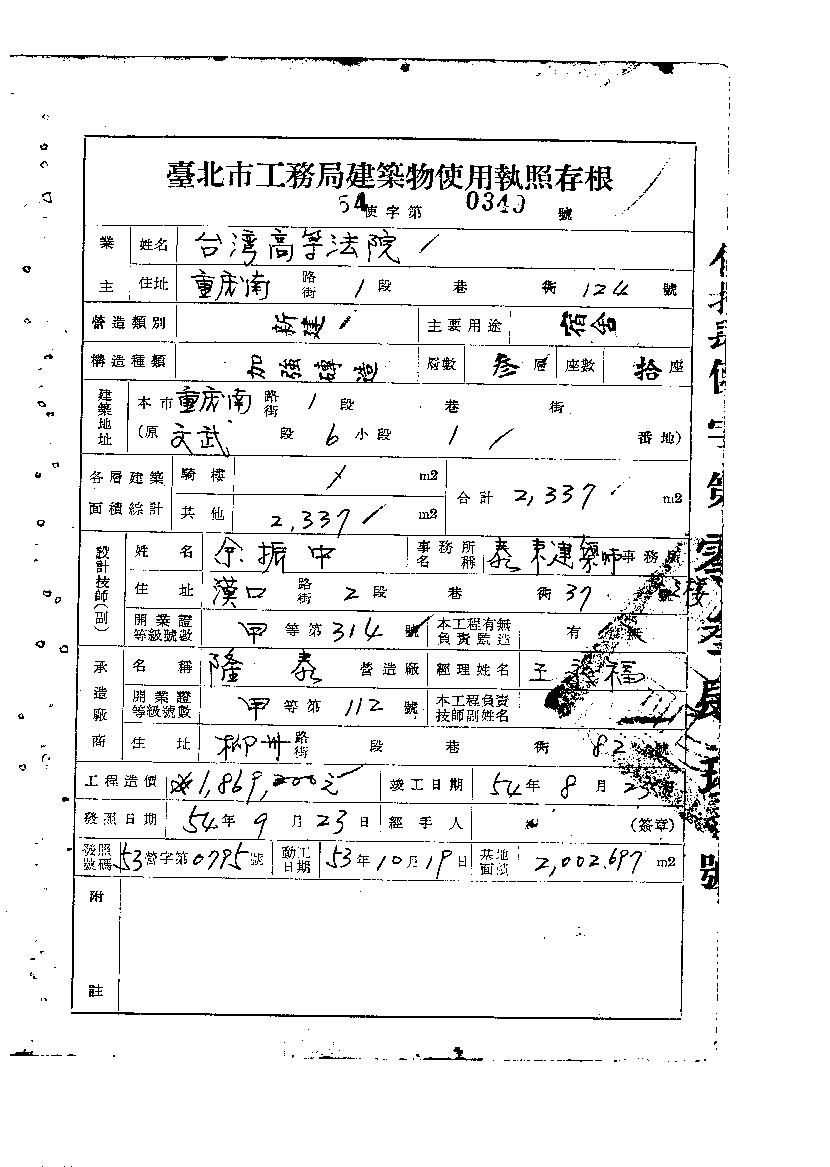 臺北市工務局建築物使用執照存根
54使字第 0340 號
業主 姓名 台湾高等法院
住址 重慶南 路街 1 段 巷 衖 124 號
營造類別 新建 主要用途 宿舍
構造種類 加強磚造 層數 叁層 座數 拾座
建築地址 本市重慶南路街 1 段 巷 衖
(原 文武 段 6 小段 1 番地)
各層建築面積綜計 騎樓 m2 合計 2,337 m2
其他 2,337 m2
設計技師(副) 姓名 余振中 事務所名稱 泰東建築師事務所
住址 漢口 路街 2 段 巷 衖 37 號 2樓
開業證等級號數 甲 等第 314 號 本工程有無負責監造 有 無
承造廠商 名稱 隆泰 營造廠 經理姓名 王永福
開業證等級號數 甲 等第 112 號 本工程負責技師副姓名
住址 柳州 路街 段 巷 衖 82 號
工程造價 1,869,000元 竣工日期 54年 8 月 23日
發照日期 54年 9 月 23 日 經手人 (簽章)
發照號碼 53營字第0795號 動工日期 53年10月19日 基地面積 2,002.697 m2
附註
使字第零叁肆 號